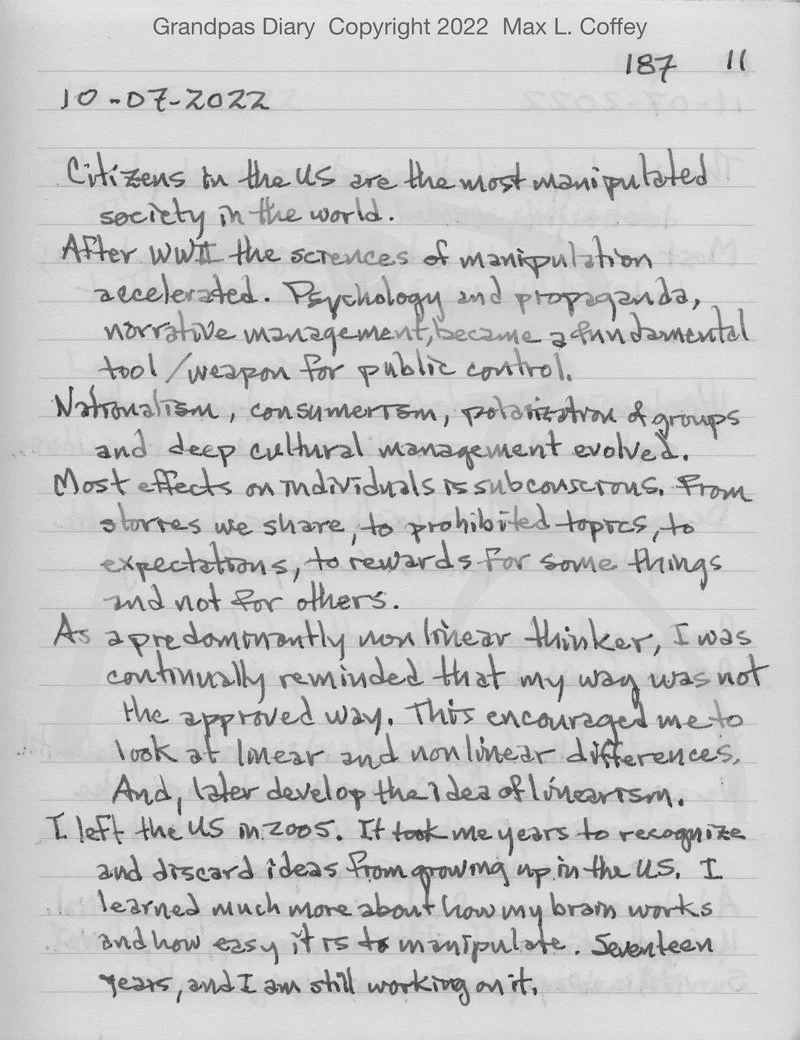 Grandpas Diary Copyright 2022 Max L. Coffey
187 11
10-07-2022
Citizens in the US are the most manipulated
society in the world.
After WWII the sciences of manipulation
accelerated. Psychology and propaganda,
narrative management, became a fundamental
tool/weapon for public control.
Nationalism, consumerism, polarization of groups
and deep cultural management evolved.
Most effects on individuals is subconscious. From
stories we share, to prohibited topics, to
expectations, to rewards for some things
and not for others.
As a predominantly non linear thinker, I was
continually reminded that my way was not
the approved way. This encouraged me to
look at linear and nonlinear differences.
And, later develop the idea of linearism.
I left the US in 2005. It took me years to recognize
and discard ideas from growing up in the US. I
learned much more about how my brain works
and how easy it is to manipulate. Seventeen
years, and I am still working on it.